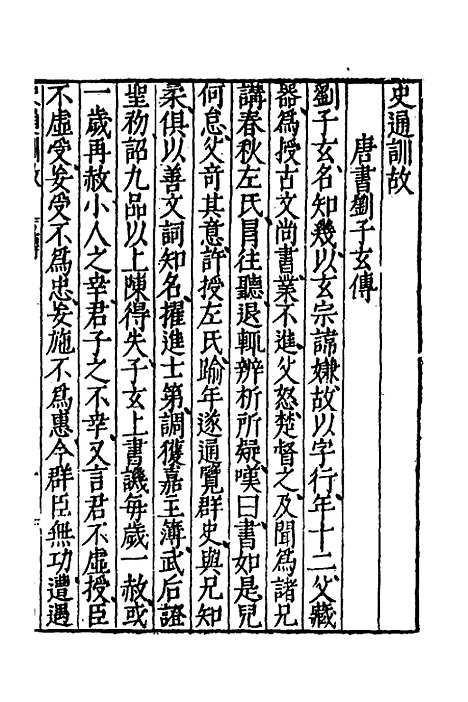 史通訓故
唐書劉子玄傳
劉子玄名知幾以玄宗諱嫌故以字行年十二父藏
器爲授古文尚書業不進父怒楚督之及聞爲諸兄
講春秋左氏冐往聽退輒辨析所疑嘆曰書如是兒
何怠父奇其意許授左氏踰年遂通覽群史與兄知
柔俱以善文詞知名擢進士第調獲嘉主簿武后證
聖初詔九品以上陳得失子玄上書譏每歲一赦或
一歲再赦小人之幸君子之不幸又言君不虛授臣
不虛受妄受不爲忠妄施不爲惠今群臣無功遭遇